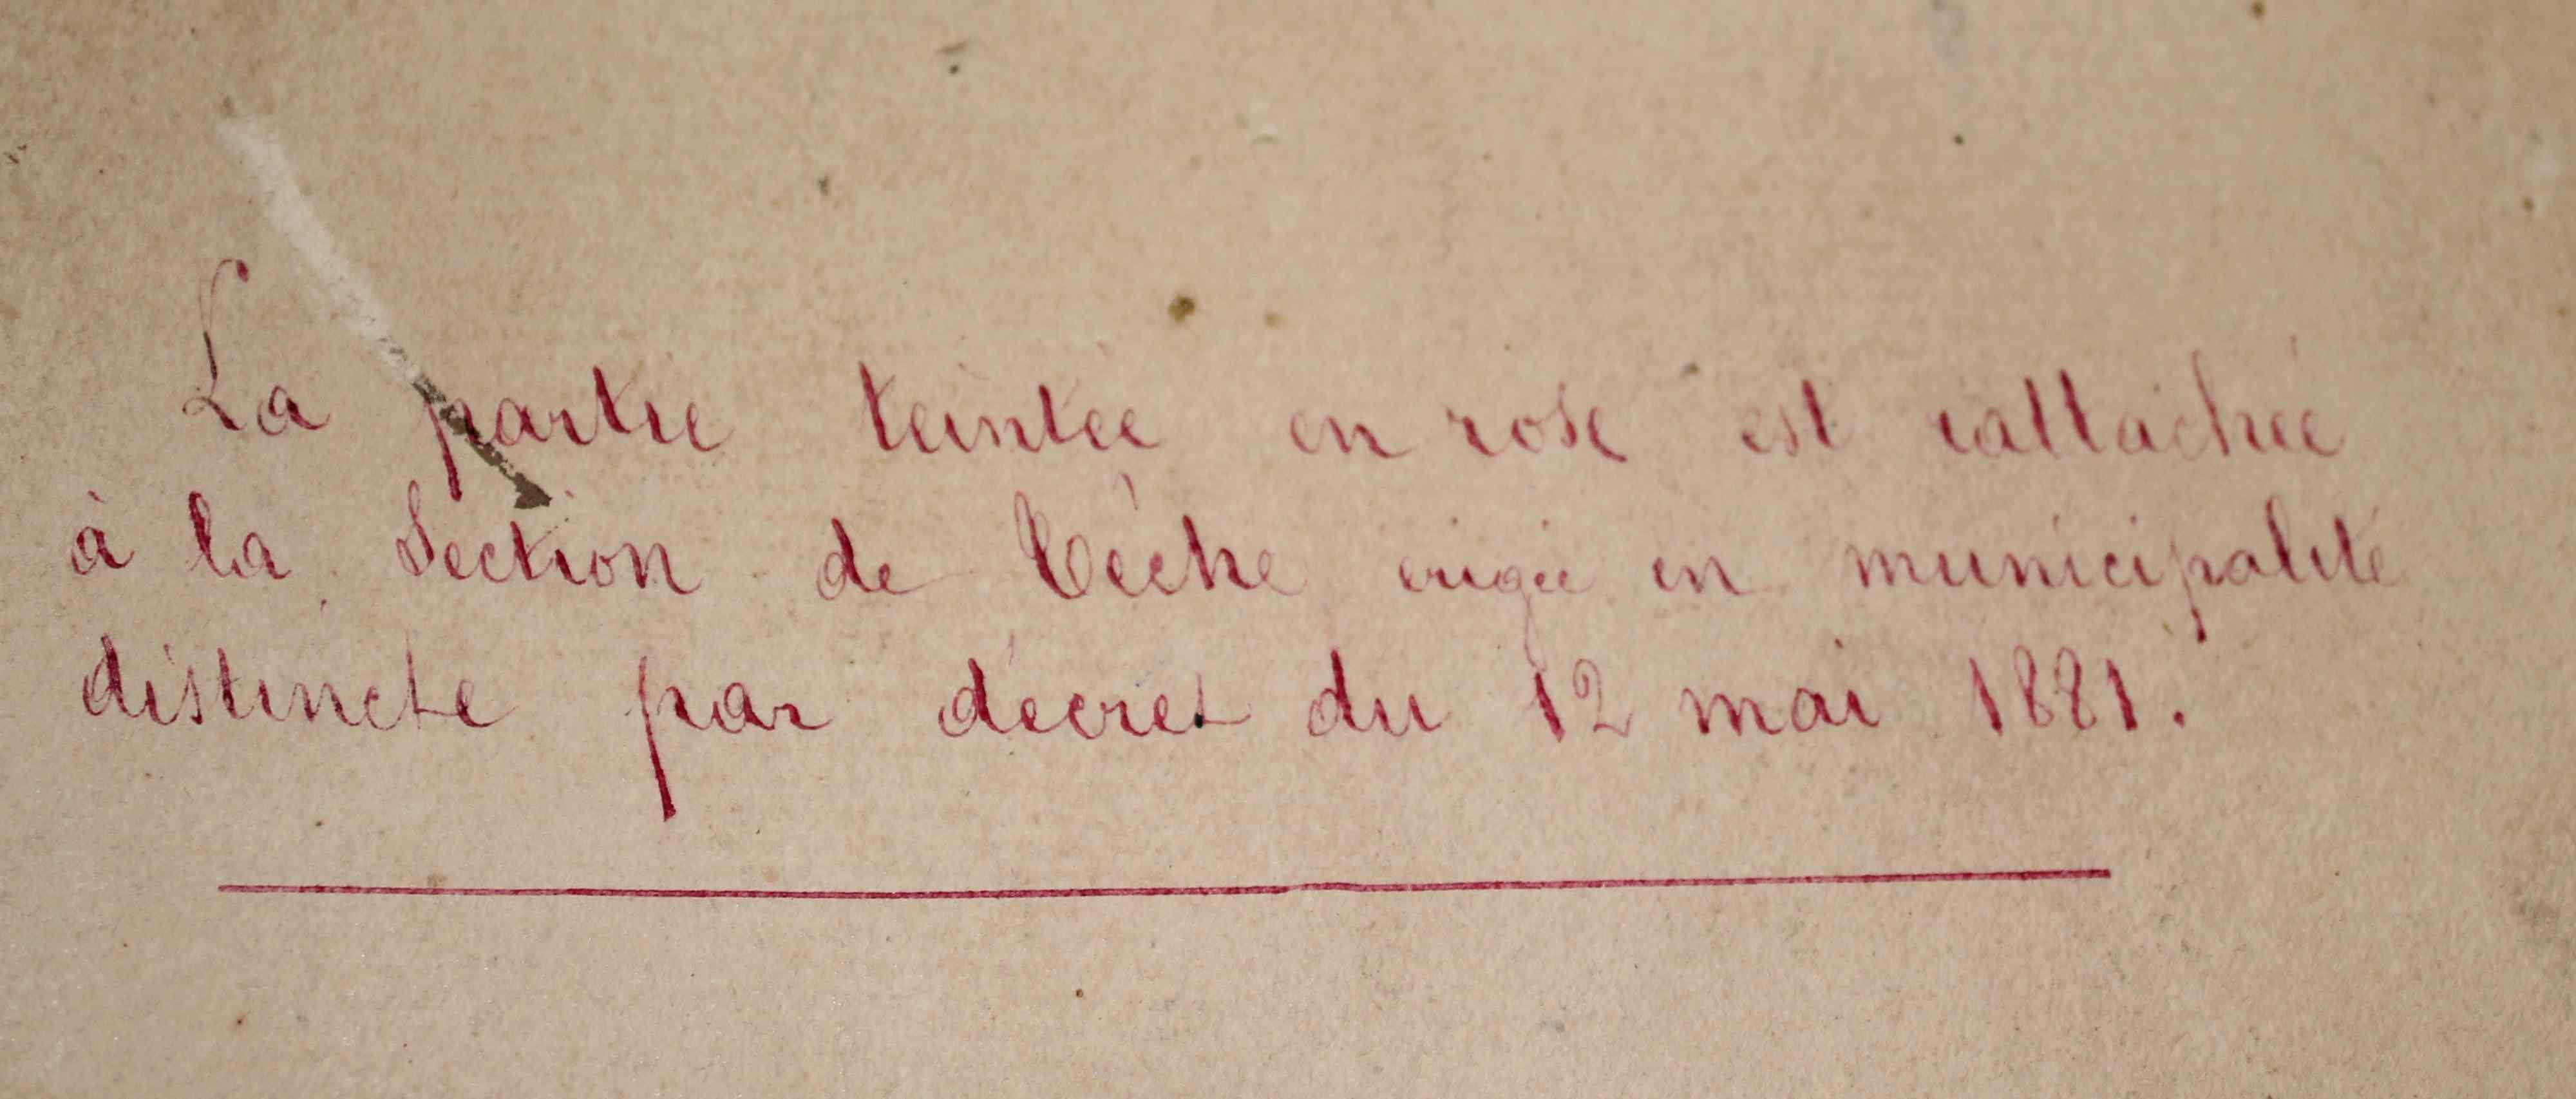 La partie teintée en rose est rattachée
à la Section de Tèche érigée en municipalité
distincte par décret du 12 mai 1881.